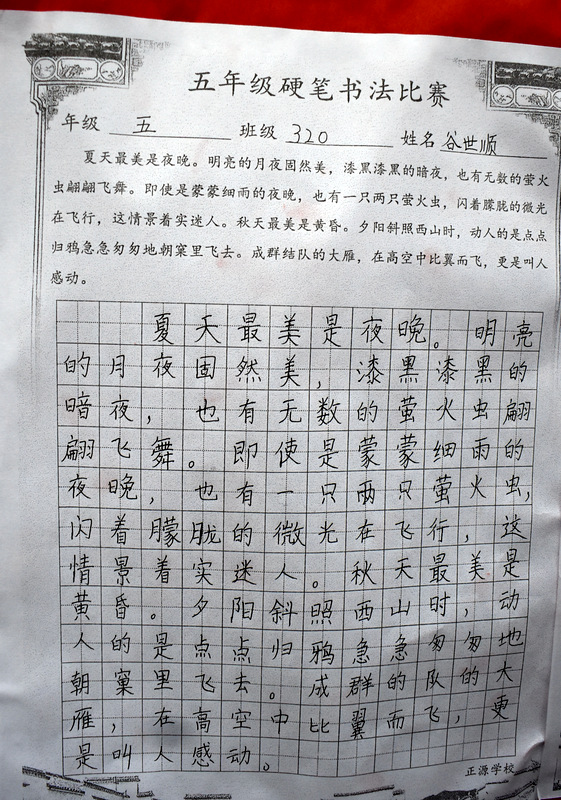 五年级硬笔书法比赛
年级 五 班级 320 姓名 谷世顺
夏天最美是夜晚。明亮的月夜固然美，漆黑漆黑的暗夜，也有无数的萤火
虫翩翩飞舞。即使是蒙蒙细雨的夜晚，也有一只两只萤火虫，闪着朦胧的微光
在飞行，这情景着实迷人。秋天最美是黄昏。夕阳斜照西山时，动人的是点点
归鸦急急匆匆地朝窠里飞去。成群结队的大雁，在高空中比翼而飞，更是叫人
感动。
夏天最美是夜晚。明亮
的月夜固然美，漆黑漆黑的
暗夜，也有无数的萤火虫翩
翩飞舞。即使是蒙蒙细雨的
夜晚，也有一只两只萤火虫，
闪着朦胧的微光在飞行，这
情景着实迷人。秋天最美是
黄昏。夕阳斜照西山时，动
人的是点点归鸦急急匆匆地
朝窠里飞去。成群的队的大
雁，在高空中比翼而飞，更
是叫人感动。
正源学校